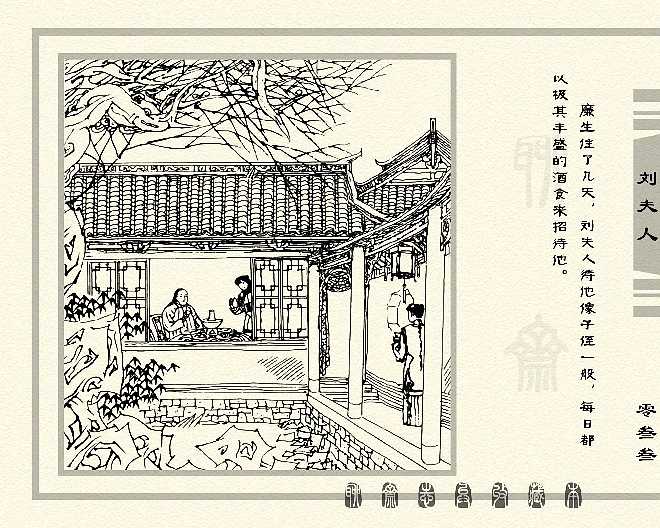 刘夫人
零叁叁
廉生住了几天，刘夫人待他像子侄一般，每日都
以极其丰盛的酒食来招待他。
聊斋志异收藏本